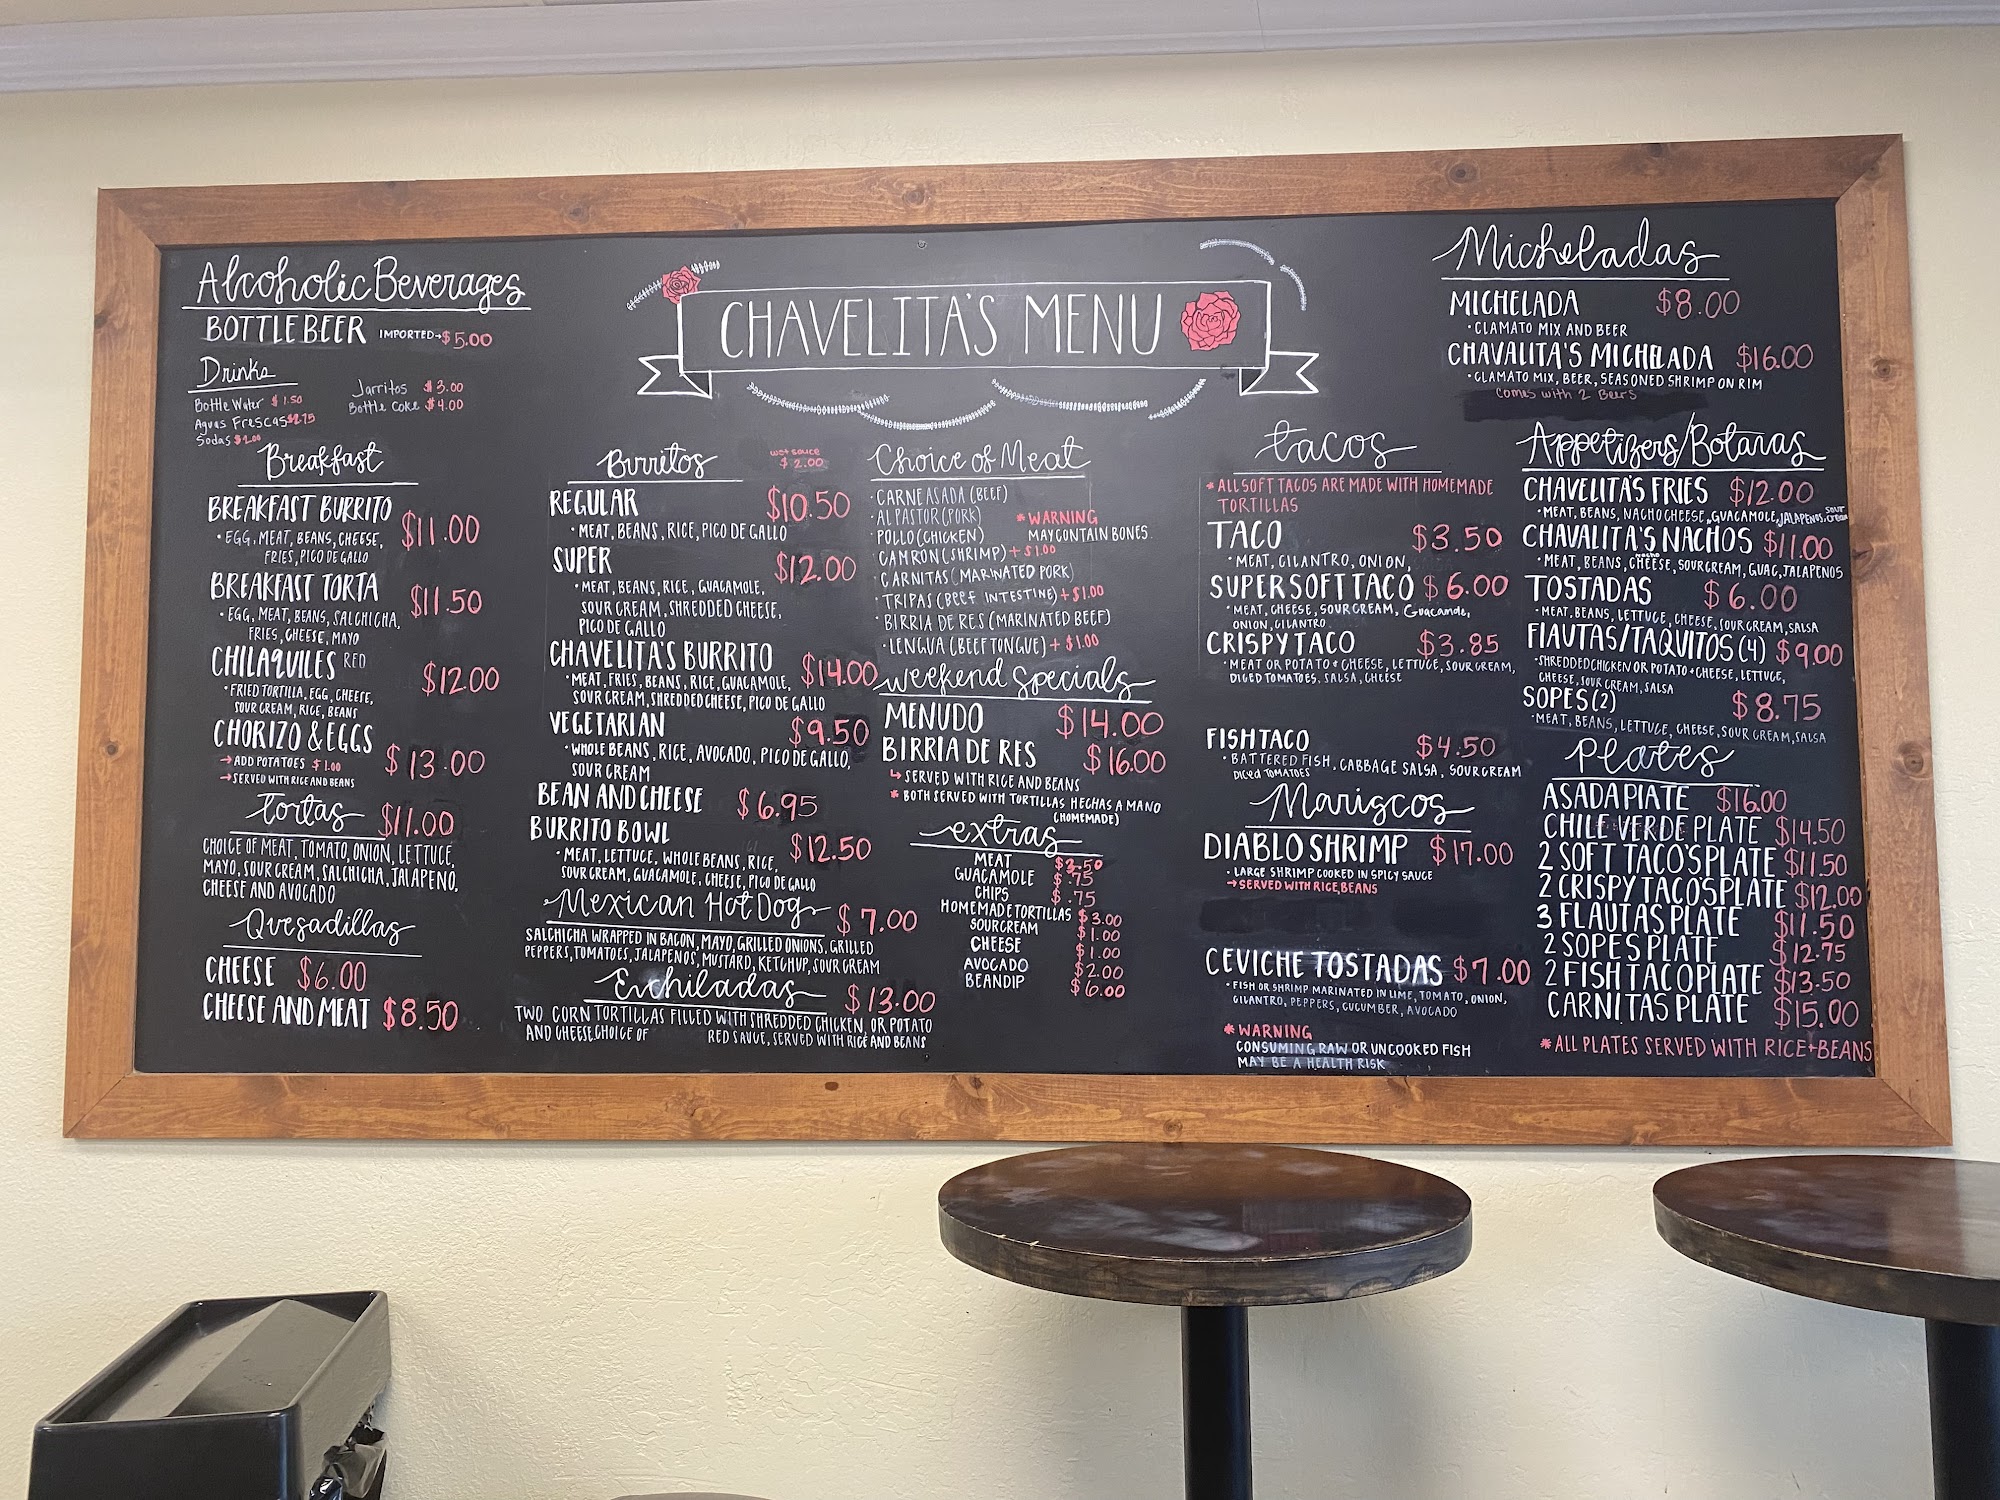 Alcoholic Beverages
BOTTLE BEER IMPORTED→$5.00
Drinks
Bottle Water $1.50
Aguas Frescas $2.75
Sodas
Jarritos $3.00
Bottle Coke $4.00
Breakfast
BREAKFAST BURRITO $11.00
• EGG, MEAT, BEANS, CHEESE,
FRIES, PICO DE GALLO
BREAKFAST TORTA $11.50
• EGG, MEAT, BEANS, SALCHICHA,
FRIES, CHEESE, MAYO
CHILAQUILES RED $12.00
• FRIED TORTILLA, EGG, CHEESE,
SOUR CREAM, RICE, BEANS
CHORIZO & EGGS $13.00
→ ADD POTATOES $1.00
→ SERVED WITH RICE AND BEANS
Tortas $11.00
CHOICE OF MEAT, TOMATO, ONION, LETTUCE,
MAYO, SOUR CREAM, SALCHICHA, JALAPEÑO,
CHEESE AND AVOCADO
Quesadillas
CHEESE $6.00
CHEESE AND MEAT $8.50
CHAVELITA'S MENU
Burritos
wet sauce
$2.00
REGULAR $10.50
• MEAT, BEANS, RICE, PICO DE GALLO
SUPER $12.00
• MEAT, BEANS, RICE, GUACAMOLE,
SOUR CREAM, SHREDDED CHEESE,
PICO DE GALLO
CHAVELITA'S BURRITO $14.00
• MEAT, FRIES, BEANS, RICE, GUACAMOLE,
SOUR CREAM, SHREDDED CHEESE, PICO DE GALLO
VEGETARIAN $9.50
• WHOLE BEANS, RICE, AVOCADO, PICO DE GALLO,
SOUR CREAM
BEAN AND CHEESE $6.95
BURRITO BOWL $12.50
• MEAT, LETTUCE, WHOLE BEANS, RICE,
SOUR CREAM, GUACAMOLE, CHEESE, PICO DE GALLO
Mexican Hot Dog $7.00
SALCHICHA WRAPPED IN BACON, MAYO, GRILLED ONIONS, GRILLED
PEPPERS, TOMATOES, JALAPENOS, MUSTARD, KETCHUP, SOUR CREAM
Enchiladas $13.00
TWO CORN TORTILLAS FILLED WITH SHREDDED CHICKEN, OR POTATO
AND CHEESE. CHOICE OF RED SAUCE, SERVED WITH RICE AND BEANS
Choice of Meat
• CARNE ASADA (BEEF)
• AL PASTOR (PORK)
• POLLO (CHICKEN)
• CAMRON (SHRIMP) + $1.00
• CARNITAS (MARINATED PORK)
• TRIPAS (BEEF INTESTINE) + $1.00
• BIRRIA DE RES (MARINATED BEEF)
• LENGUA (BEEF TONGUE) + $1.00
* WARNING
MAY CONTAIN BONES.
Weekend Specials
MENUDO $14.00
BIRRIA DE RES $16.00
↳ SERVED WITH RICE AND BEANS
* BOTH SERVED WITH TORTILLAS HECHAS A MANO
(HOMEMADE)
extras
MEAT $3.50
GUACAMOLE $.75
CHIPS $.75
HOMEMADE TORTILLAS $3.00
SOUR CREAM $1.00
CHEESE $1.00
AVOCADO $2.00
BEAN DIP $6.00
tacos
* ALL SOFT TACOS ARE MADE WITH HOMEMADE
TORTILLAS
TACO $3.50
• MEAT, CILANTRO, ONION,
SUPER SOFT TACO $6.00
• MEAT, CHEESE, SOUR CREAM, Guacamole,
ONION, CILANTRO
CRISPY TACO $3.85
• MEAT OR POTATO + CHEESE, LETTUCE, SOUR CREAM,
DICED TOMATOES, SALSA, CHEESE
FISH TACO $4.50
• BATTERED FISH, CABBAGE SALSA, SOUR CREAM
DICED TOMATOES
Mariscos
DIABLO SHRIMP $17.00
• LARGE SHRIMP COOKED IN SPICY SAUCE
→ SERVED WITH RICE, BEANS
CEVICHE TOSTADAS $7.00
• FISH OR SHRIMP MARINATED IN LIME, TOMATO, ONION,
CILANTRO, PEPPERS, CUCUMBER, AVOCADO
* WARNING
CONSUMING RAW OR UNCOOKED FISH
MAY BE A HEALTH RISK
Micheladas
MICHELADA $8.00
• CLAMATO MIX AND BEER
CHAVALITA'S MICHELADA $16.00
• CLAMATO MIX, BEER, SEASONED SHRIMP ON RIM
Comes with 2 Beers
Appetizers/Botanas
CHAVELITA'S FRIES $12.00
• MEAT, BEANS, NACHO CHEESE, GUACAMOLE, JALAPENOS, SOUR CREAM
CHAVALITA'S NACHOS $11.00
• MEAT, BEANS, nacho CHEESE, SOUR CREAM, GUAC, JALAPENOS
TOSTADAS $6.00
• MEAT, BEANS, LETTUCE, CHEESE, SOUR CREAM, SALSA
FLAUTAS/TAQUITOS (4) $9.00
• SHREDDED CHICKEN OR POTATO + CHEESE, LETTUCE,
CHEESE, SOUR CREAM, SALSA
SOPES (2) $8.75
• MEAT, BEANS, LETTUCE, CHEESE, SOUR CREAM, SALSA
Plates
ASADA PLATE $16.00
CHILE VERDE PLATE $14.50
2 SOFT TACO'S PLATE $11.50
2 CRISPY TACO'S PLATE $12.00
3 FLAUTAS PLATE $11.50
2 SOPES PLATE $12.75
2 FISH TACO PLATE $13.50
CARNITAS PLATE $15.00
* ALL PLATES SERVED WITH RICE + BEANS